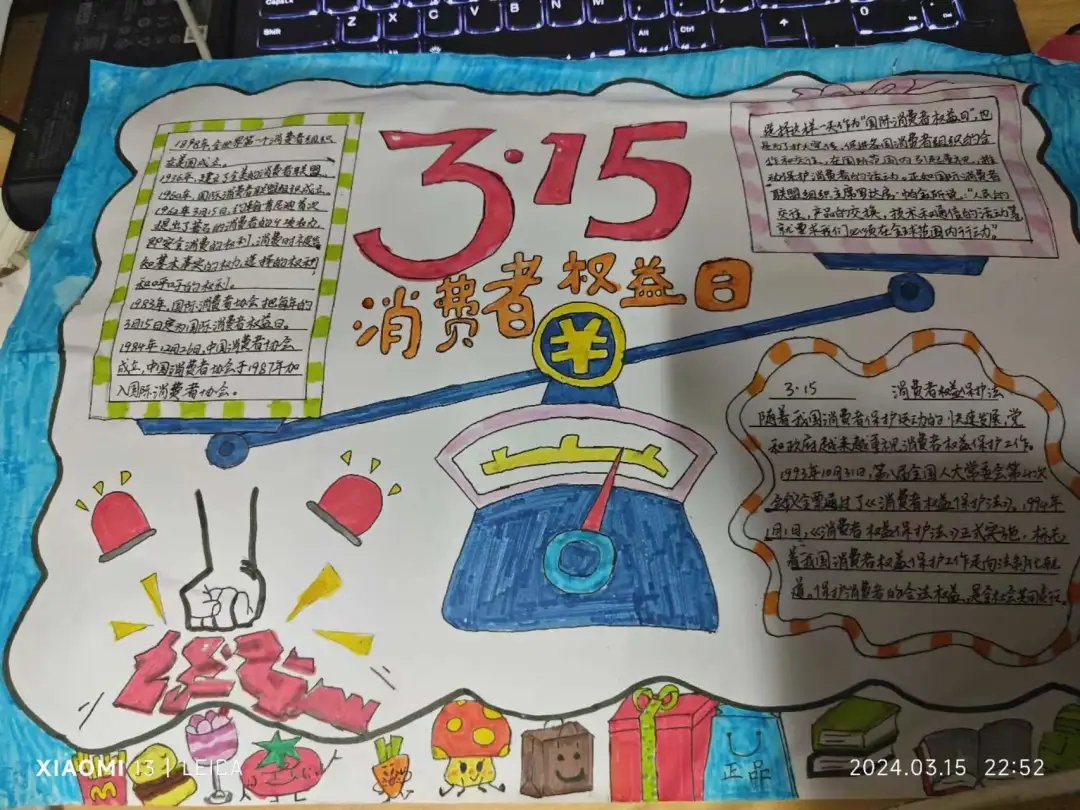 3·15
消费者权益日
1898年,全世界第一个消费者组织
在美国成立。
1936年,建立了全美的消费者联盟。
1960年,国际消费者联盟组织成立。
1962年3月15日,
提出了著名的消费者的4项权力,
即安全消费的权利,消费时被告
知基本事实的权力,选择的权利
和呼吁的权利。
1983年,国际消费者协会把每年的
3月15日定为国际消费者权益日。
1984年12月26日,中国消费者协会
成立,中国消费者协会于1987年加
入国际消费者协会。
选择这样一天作为“国际消费者权益日”,也
是为了扩大宣传,促进各国消费者组织的合
作和交往,在国际范围内引起重视,推
动保护消费者的活动。正如国际消费者
联盟组织主席
交往,产品的交换,技术和通信的活动等
就要求我们必须在全球范围内行动。”
¥
3·15 消费者权益保护法
随着我国消费者保护运动的快速发展,党
和政府越来越重视消费者权益保护工作。
1993年10月31日,第八届全国人大常委会第四次
会议全票通过了《消费者权益保护法》。1994年
1月1日,《消费者权益保护法》正式实施,标志
着我国消费者权益保护工作走向法制化轨
道。保护消费者的合法权益,是全社会共同责任。
正品
XIAOMI 13 | LEICA
2024.03.15 22:52